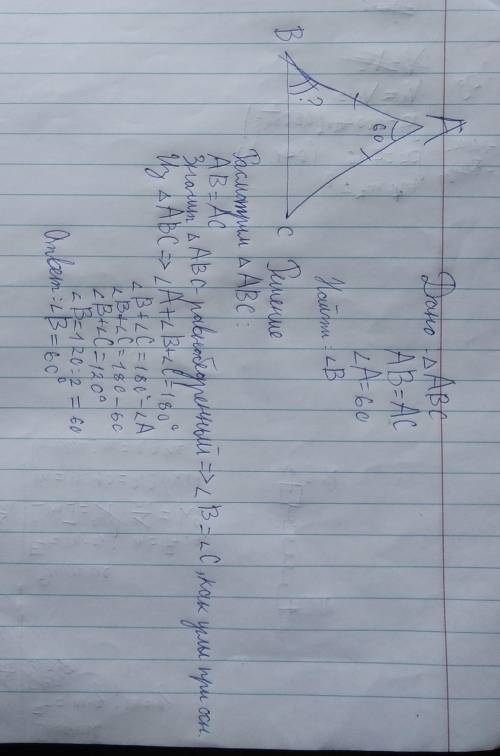 A
60
?
B
C
Дано: △ABC
AB=AC
∠A=60
Найти: ∠B
Решение
Расмотрим △ABC:
AB=AC
Значит △ABC-равнобедренный => ∠B=∠C, как углы при осн.
Из △ABC=> ∠A+∠B+∠C=180°
∠B+∠C=180°-∠A
∠B+∠C=180-60
∠B+∠C=120°
∠B=120:2=60
Ответ: ∠B=60°